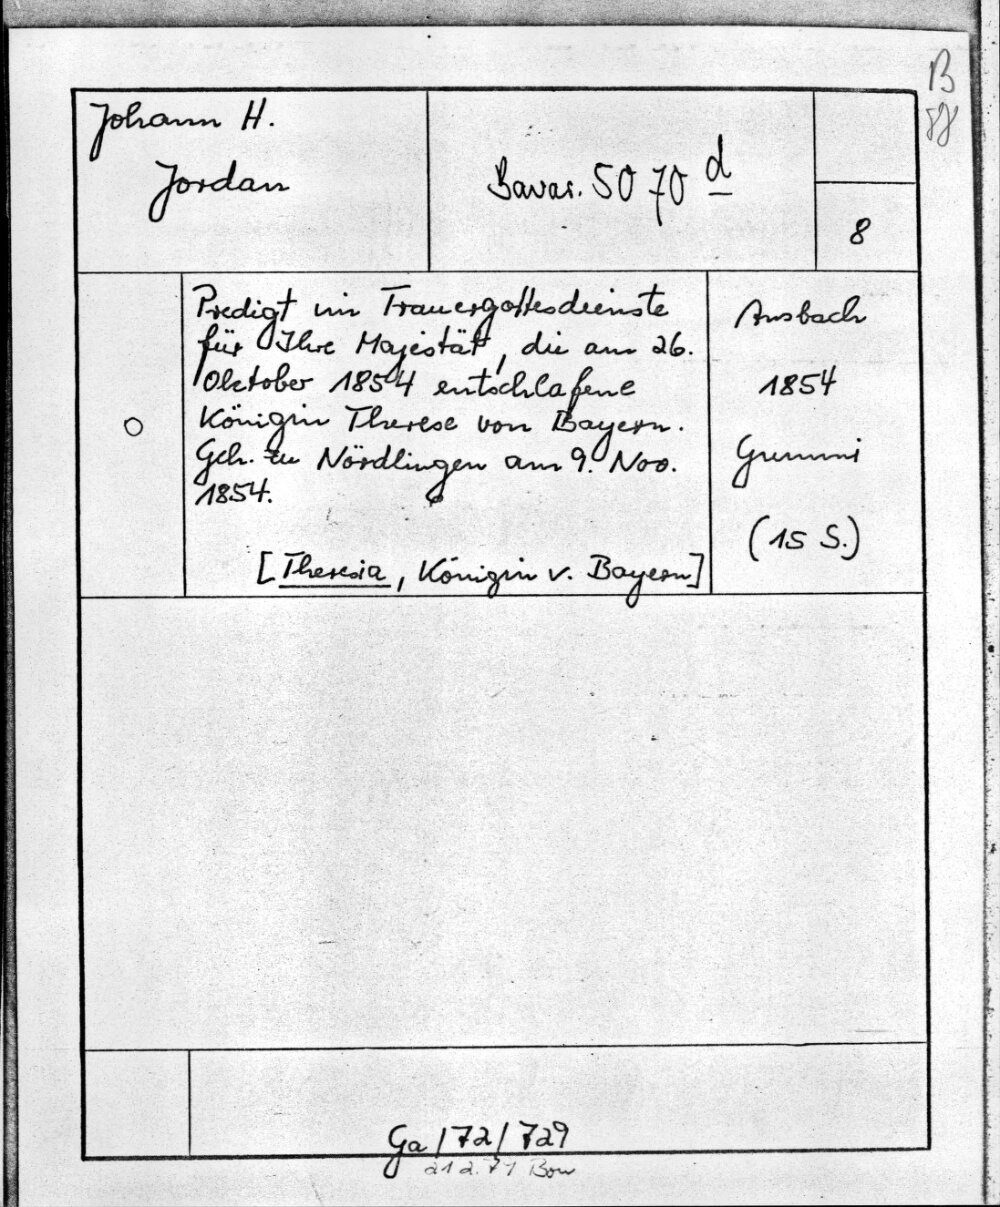 B
Johann H.
Jordan
Bavar. 5070 d
8
Predigt im Trauergottesdienste
für Ihre Majestät, die am 26.
Oktober 1854 entschlafene
Königin Therese von Bayern.
Geh. zu Nördlingen am 9. Nov.
1854.
[Theresia, Königin v. Bayern]
Ansbach
1854
Grummi
(15 S.)
Ga/72/729